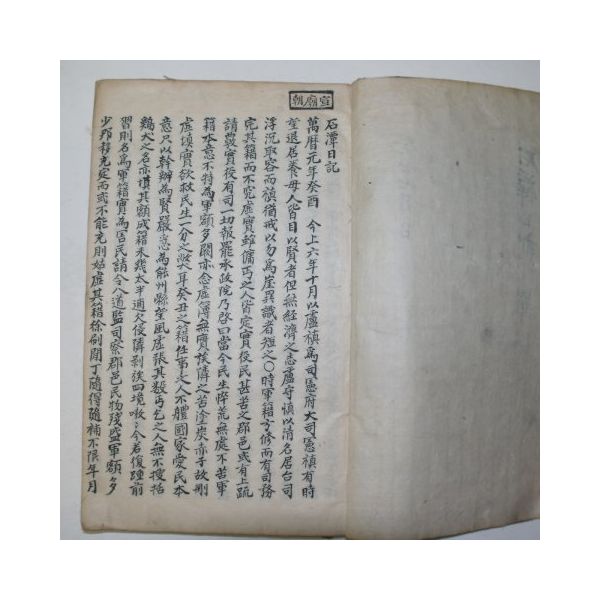 宣廟朝
石潭日記
萬曆元年癸酉 今上六年十月以盧禛爲司憲府大司憲禛有時
望退居養母人皆目以賢者但無經濟之志盧守愼以淸名居台司
浮沉取容而禛猶戒以勿爲崖異識者短之〇時軍籍方修而有司務
完其籍而不究虛實雖傭丐之人皆定實役民甚苦之郡邑或有上疏
請覈實役有司一切報罷承政院乃啓曰當今民生悴荒無處不苦軍
籍本意不特爲軍額多闕亦念虛簿無實族隣之苦塗炭赤子故刪
虛塡實欲救民生一分之弊耳癸丑之籍任事之人不體國家愛民本
意只以幹辦爲賢嚴急爲能州縣望風虛張其數丐乞之人無不搜括
鷄犬之名亦塡其額成籍未幾太半逋欠侵隣剝族四境嗷嗷今若復踵前
習則名爲軍籍實爲害民請令八道監司察郡邑民物殘盛軍額多
少邦移充定而或不能充則姑虛其籍徐刷閒丁隨得隨補不限年月